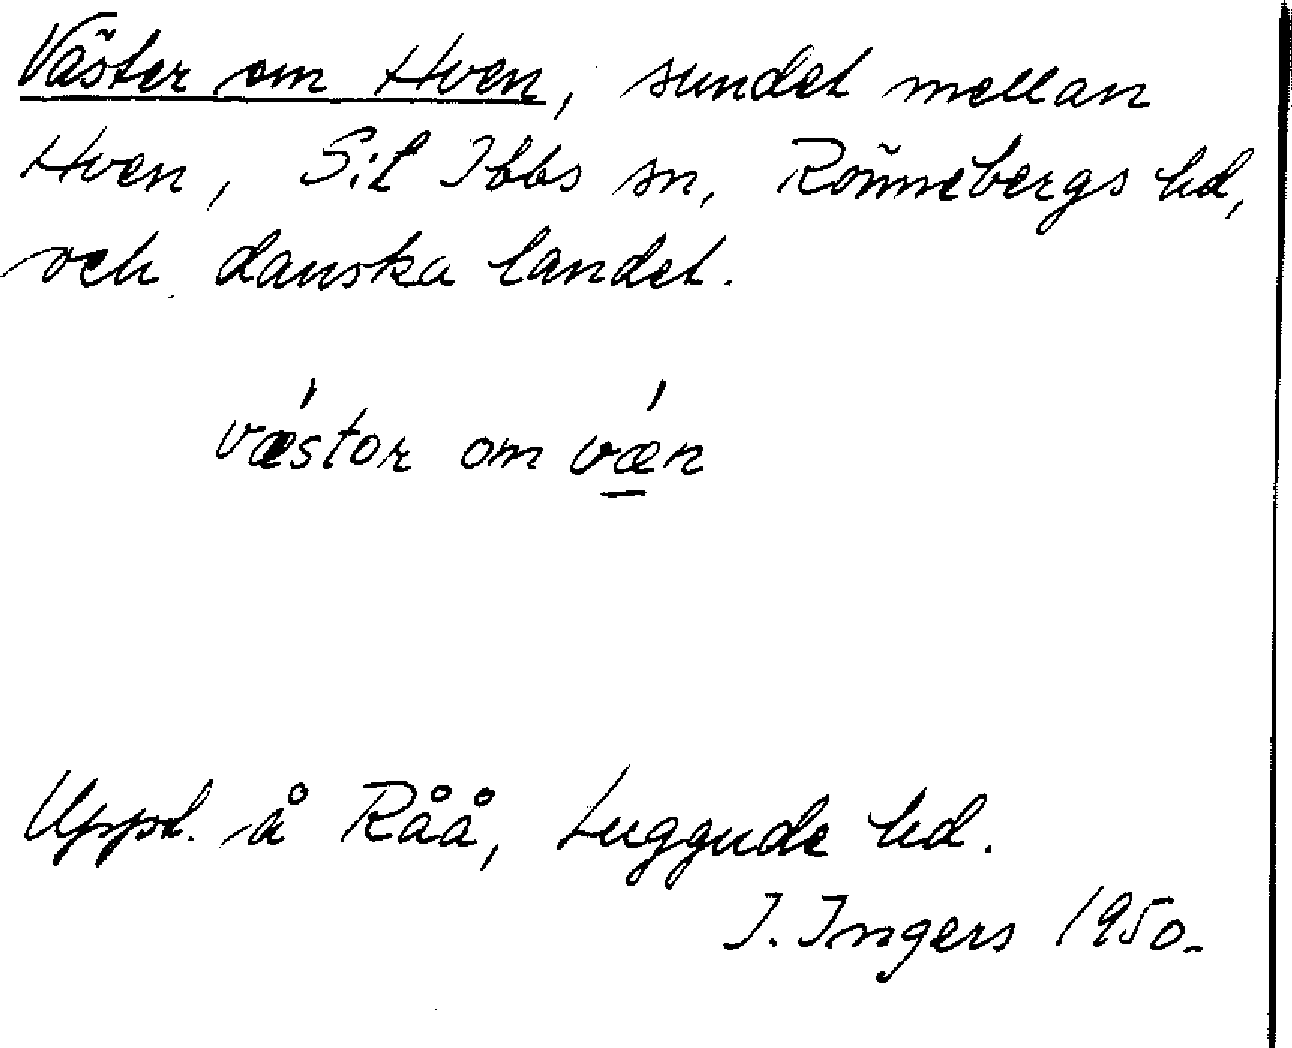 Väster om Hven, sundet mellan
Hven, S:t Ibbs sn, Rönnebergs hd,
och danska landet.
vǽstor om vǽ̱n
Uppt. å Råå, Luggude hd.
I. Ingers 1950.